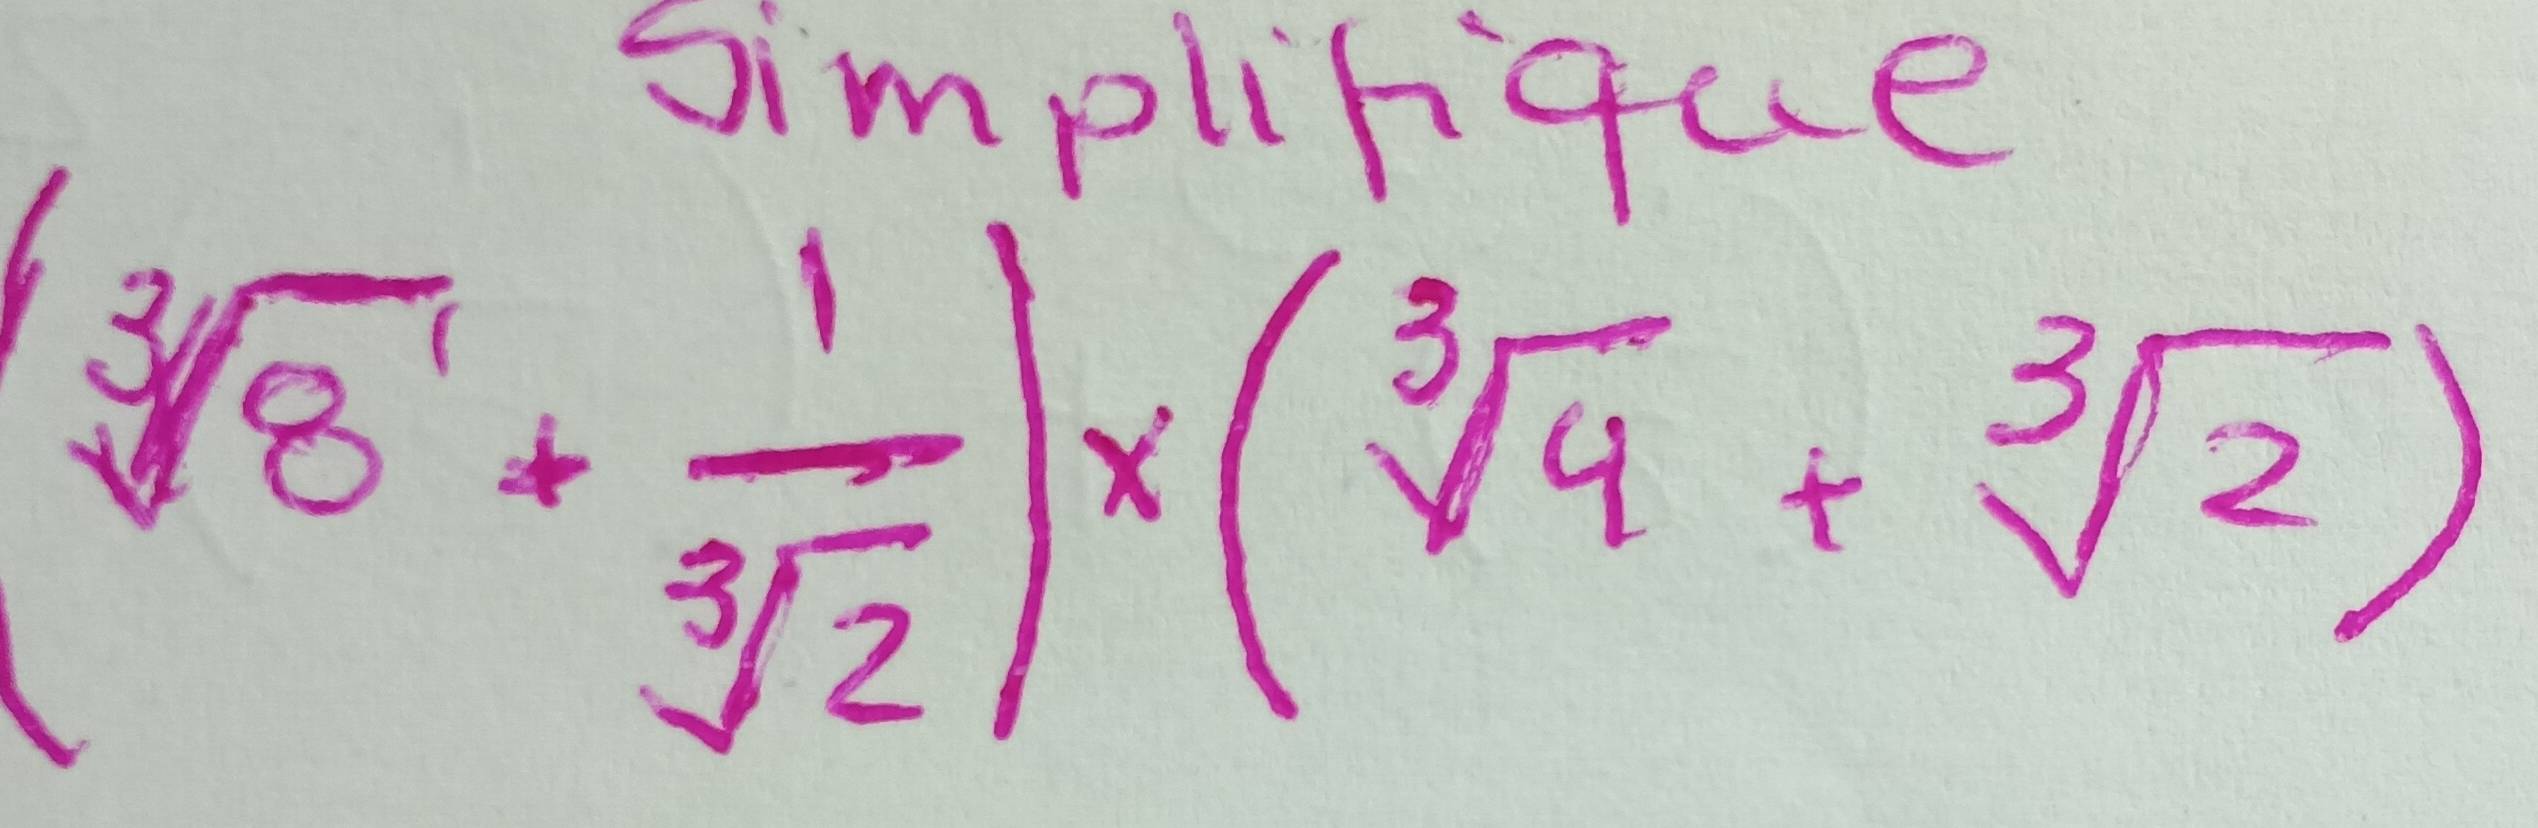 Simplifique
(∛8 + 1/∛2) × (∛4 + ∛2)